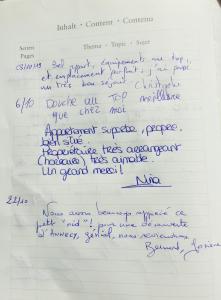 Inhalt · Content · Contenu
Seiten
Pages
Thema · Topic · Sujet
Bel appart, équipements au top,
et emplacement parfait; j'ai passé
un très bon séjour Christophe
6/10 Douche au TOP meilleure
que chez moi
Appartement superbe, propre,
bien situé.
Propriétaire très arrangeant
Chaleureux, très aimable.
Un grand merci!
Nina
22/10
Nous avons beaucoup apprécié ce
petit "nid"! pour une découverte
d'Annecy, génial, nous reviendrons
Bernard,